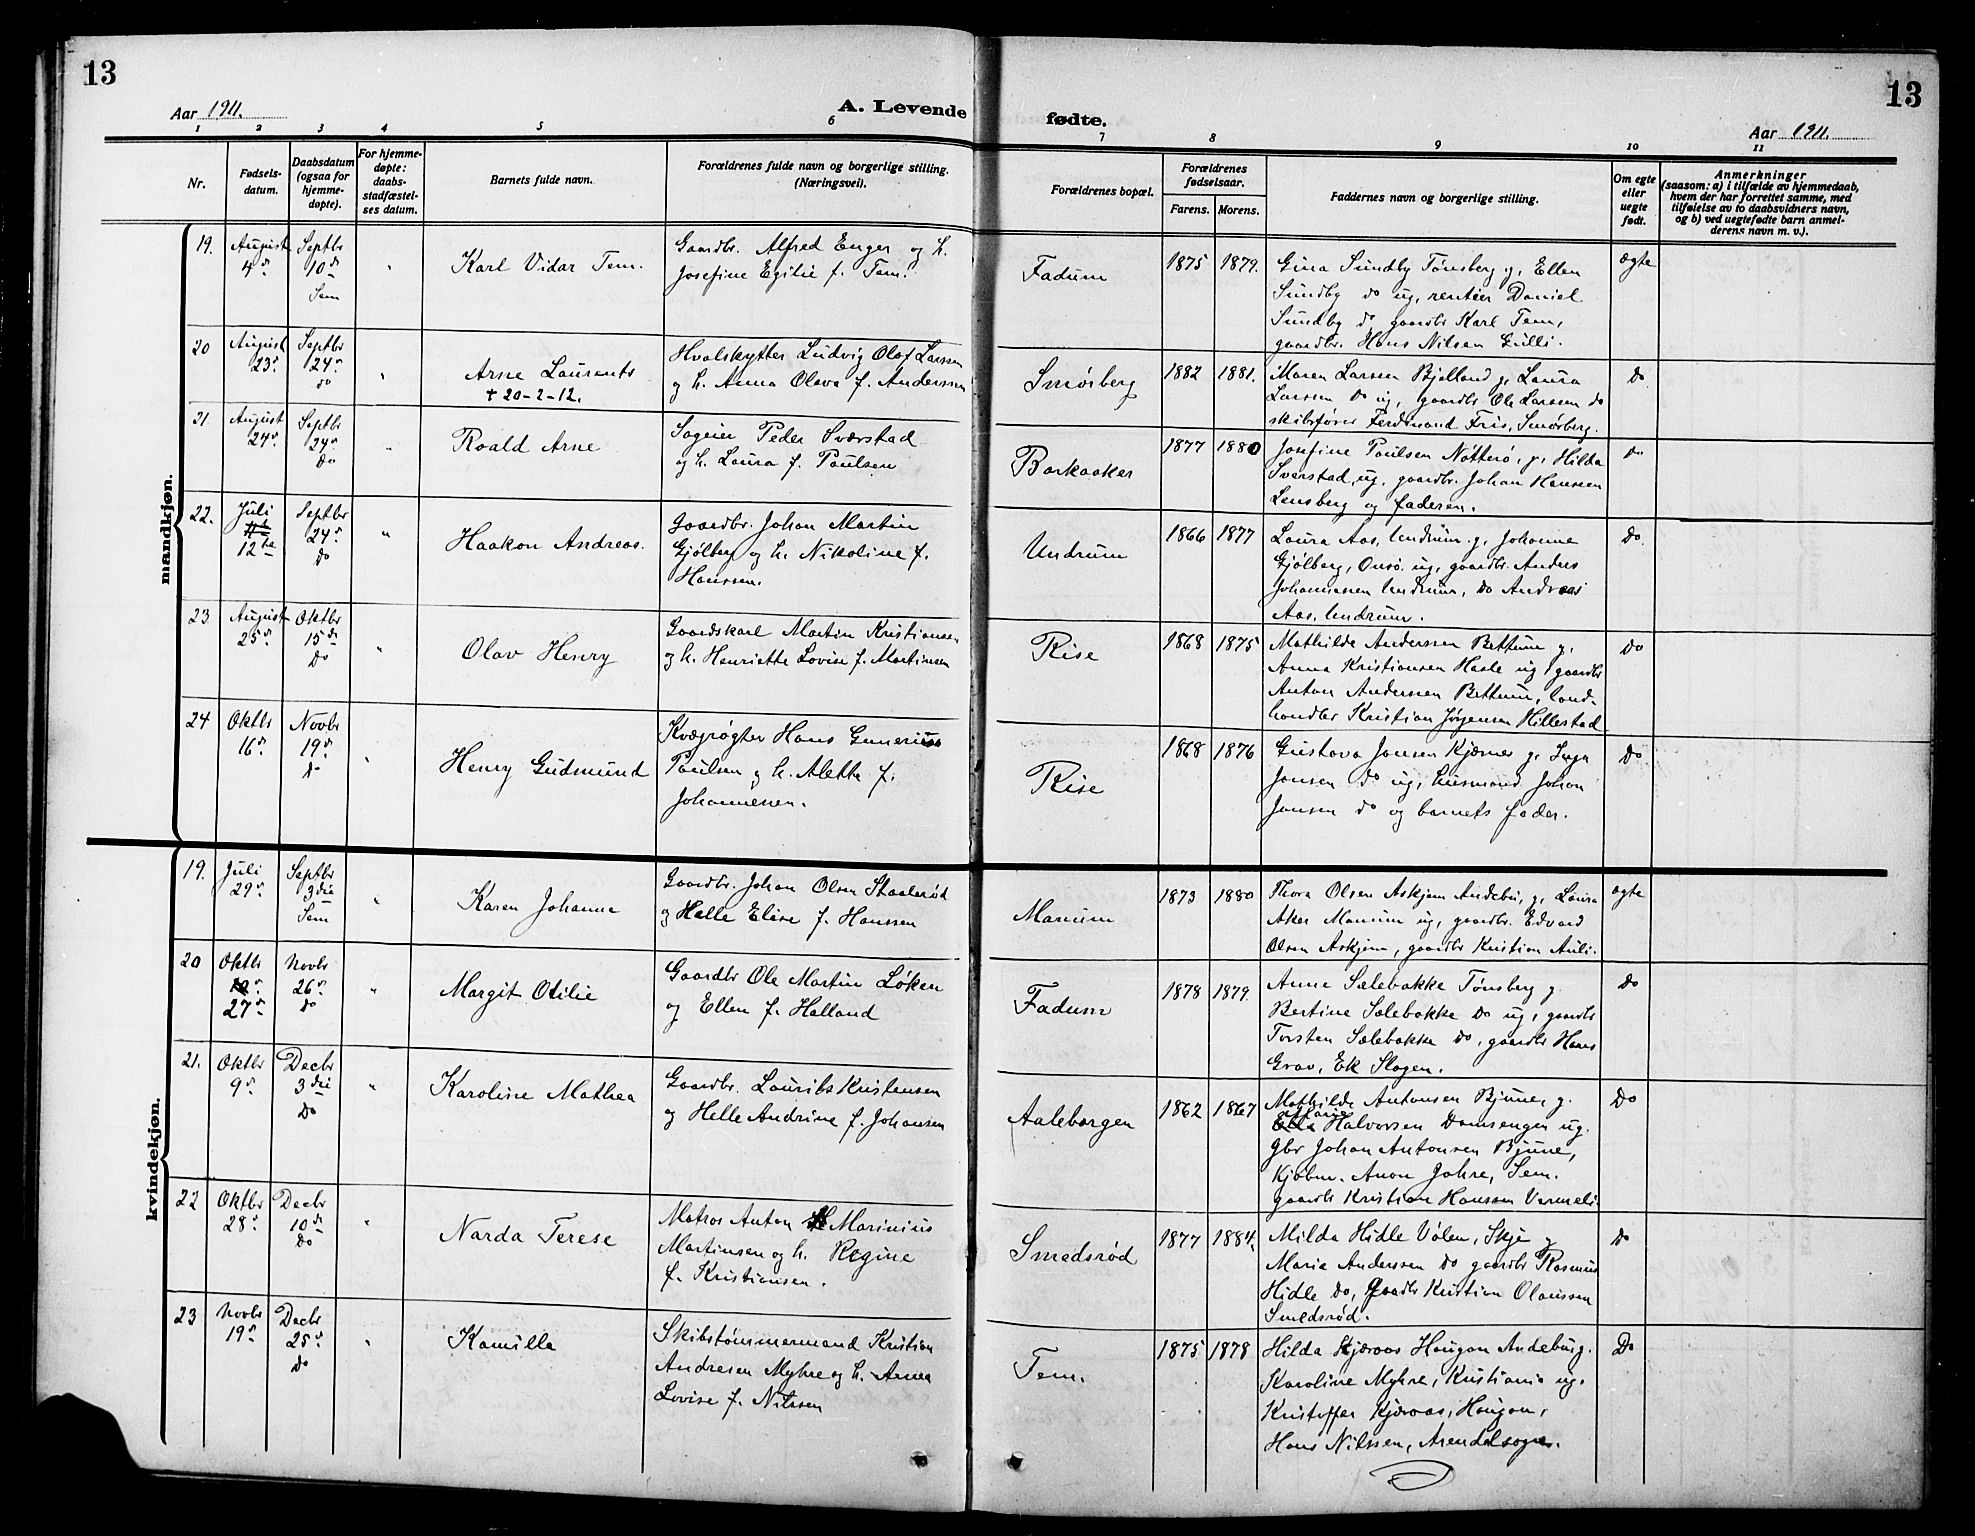 13
13
Aar 1911.
A. Levende
fødte.
Aar 1911.
1 2 3 4 5 6 7 8 9 10 11
Nr.
Fødsels-
datum.
Daabsdatum
(ogsaa for
hjemme-
døpte).
For hjemme-
døpte:
daabs-
stadfæstel-
ses datum.
Barnets fulde navn.
Forældrenes fulde navn og borgerlige stilling.
(Næringsvei).
Forældrenes bopæl.
Forældrenes
fødselsaar.
Farens. Morens.
Faddernes navn og borgerlige stilling.
Om egte
eller
uegte
født.
Anmerkninger
(saasom: a) i tilfælde av hjemmedaab,
hvem der har forrettet samme, med
tilføielse av to daabsvidners navn,
og b) ved uegtefødte barn anmel-
derens navn m. v.).
mandkjøn.
19.
August
4de
Septbr
10de
Sem
Karl Vidar Tem.
Gaardbr. Alfred Enger og h.
Josefine Egilie f. Tem.
Fadum
1875 1879.
Gina Sundby Tønsberg g, Ellen
Sundby do ug, rentier Daniel
Sundby do, gaardbr Karl Tem,
gaardbr. Hans Nilsen Gulli.
ægte
20
August
23.
Septbr
24.
do
Arne Laurents
+ 20-2-12.
Hvalskytter Ludvig Olaf Larsen
og h. Anna Olava f. Andersen
Smørberg
1882 1881.
Maren Larsen Bjelland g, Laura
Larsen Do ug, gaardbr Ole Larsen do
skibsfører Ferdinand Fris, Smørberg.
do
21.
August
24.
Septbr
24.
Do
Roald Arne
Sageier Peder Sværstad
og h. Laura f. Paulsen
Barkaaker
1877 1880
Josefine Paulsen Nøtterø, g, Hilda
Sverstad, ug, gaardbr. Johan Hanssen
Lensberg og faderen.
do
22.
Juli
12te
Septbr
24.
Do
Haakon Andreas.
Gaardbr. Johan Martin
Gjølberg og h. Nikoline f.
Hanssen.
Undrum
1866 1877
Laura Aas, Undrum g, Johanne
Gjølberg, Onsø. ug, gaardbr. Anders
Johannessen Undrum, Do Andreas
Aas, Undrum.
Do.
23
August
25.
Oktbr
15de
Do
Olav Henry
Gaardskarl Martin Kristiansen
og h. Henriette Lovise f. Martinsen
Rise
1868 1875
Mathilde Anderssen Bettum g,
Anna Kristiansen Hasle ug, gaardbr
Anton Anderssen Bettum, land-
handler Kristian Jørgensen Hillestad
Do
24
Oktbr
16.
Novbr
19.
do
Henry Gudmund
Kvægrøgter Hans Gunerius
Paulsen og h. Alette f.
Johannessen.
Rise
1868 1876
Gustava Jansen Kjærnes g, Inga
Jansen do ug, husmand Johan
Jansen do og barnets fader.
Do
kvindekjøn.
19.
Juli
29.
Septbr
3die
Sem
Karen Johanne
Gaardbr. Johan Olsen Staalerød
og Helle Elise f. Hanssen
Manum
1873 1880
Thora Olsen Askjem Andebu, g, Lovisa
Aker Manum ug, gaardbr. Edvard
Olsen Askjem, gaardbr Kristian Auli.
ægte
20
Oktbr
27.
Novbr
26.
do
Margit Otilie
Gaardbr Ole Martin Løken
og Ellen f. Halland
Fadum
1878 1879.
Anne Sælebakke Tønsberg g.
Bertine Sælebakke Do ug, gaardbr
Torsten Sælebakke Do, gaardbr Hans
Grav, Ek Slagen.
Do
21.
Oktbr
9.
Decbr
3die
Do
Karoline Mathea
Gaardbr. Laurits Kristensen
og Helle Andrine f. Johansen
Aaleborgen
1862 1867
Mathilde Antonsen Bjune, g.
Halvorsen Domsengen ug.
Gbr Johan Antonsen Bjune,
Kjøbm. Anon Johre, Sem.
gaardbr Kristian Hanssen Vermeli
Do
22
Oktbr
28.
Decbr
10de
Do
Narda Terese
Matros Anton Marinius
Martinsen og h. Regine
f. Kristiansen.
Smedsrød
1877 1884.
Milda Hidle Vølen, Skje g
Marie Anderssen Do gaardbr Rasmus
Hidle Do, Gaardbr Kristian Olaussen
Smedsrød.
Do
23
Novbr
19.
Decbr
25.
Do
Kamilla
Skibstømmermand Kristian
Andresen Myhre og h. Anna
Lovise f. Nilssen
Tem.
1875 1878
Hilda Kjæraas Haugan Andebu g.
Karoline Myhre, Kristiania ug.
Kristoffer Kjæraas, Haugan,
Hans Nilssen, Arendalsogn.
Do